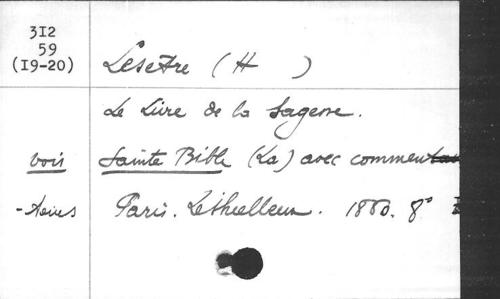 312
59
(19-20)
Lesetre (H )
Le Livre de la Sagesse.
vois Sainte Bible (La) avec commen
-taires Paris. Lethielleux. 1880. 8°